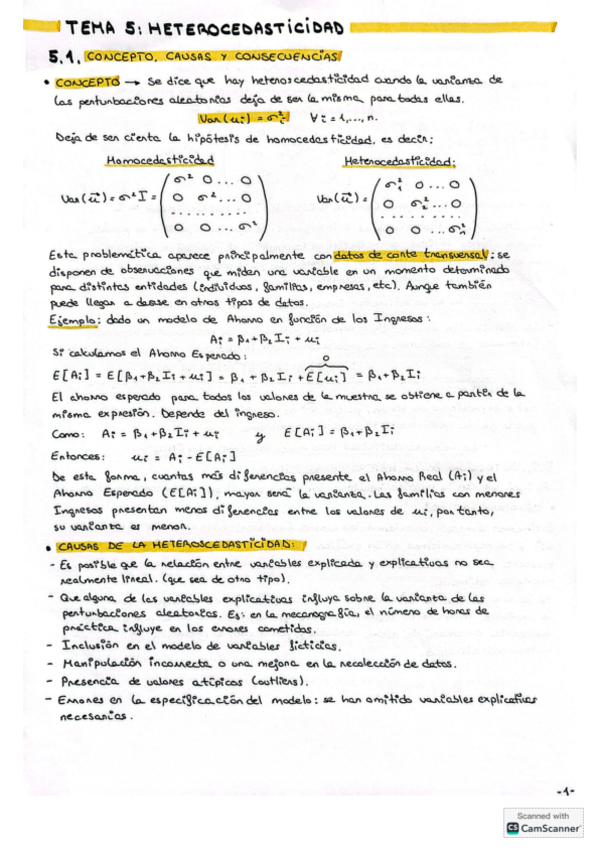 TEMA 5: HETEROCEDASTICIDAD
5.1. CONCEPTO, CAUSAS Y CONSECUENCIAS
• CONCEPTO → Se dice que hay heteroscedasticidad cuando la varianza de
las perturbaciones aleatorias deja de ser la misma para todas ellas.
Var(ui) = σi² ∀i = 1,..., n.
Deja de ser cierta la hipótesis de homocedasticidad, es decir:
Homocedasticidad Heterocedasticidad:
Var(u⃗) = σ²I = (σ² 0 ... 0 Var(u⃗) = (σ1² 0 ... 0
0 σ² ... 0 0 σ2² ... 0
.......... ..........
0 0 ... σ²) 0 0 ... σn²)
Esta problemática aparece principalmente con datos de corte transversal: se
disponen de observaciones que miden una variable en un momento determinado
para distintas entidades (individuos, familias, empresas, etc). Aunque también
puede llegar a darse en otros tipos de datos.
Ejemplo: dado un modelo de Ahorro en función de los Ingresos:
Ai = β1 + β2 Ii + ui
Si calculamos el Ahorro Esperado: 0
E[Ai] = E[β1 + β2 Ii + ui] = β1 + β2 Ii + E[ui] = β1 + β2 Ii
El ahorro esperado para todos los valores de la muestra se obtiene a partir de la
misma expresión. Depende del ingreso.
Como: Ai = β1 + β2 Ii + ui y E[Ai] = β1 + β2 Ii
Entonces: ui = Ai - E[Ai]
De esta forma, cuantas más diferencias presente el Ahorro Real (Ai) y el
Ahorro Esperado (E[Ai]), mayor será la varianza. Las familias con menores
Ingresos presentan menos diferencias entre los valores de ui, por tanto,
su varianza es menor.
• CAUSAS DE LA HETEROSCEDASTICIDAD:
- Es posible que la relación entre variables explicada y explicativas no sea
realmente lineal. (que sea de otro tipo).
- Que alguna de las variables explicativas influya sobre la varianza de las
perturbaciones aleatorias. Ej: en la mecanografía, el número de horas de
práctica influye en los errores cometidos.
- Inclusión en el modelo de variables ficticias.
- Manipulación incorrecta o una mejora en la recolección de datos.
- Presencia de valores atípicos (outliers).
- Errores en la especificación del modelo: se han omitido variables explicativas
necesarias.
-1-
Scanned with
CS CamScanner